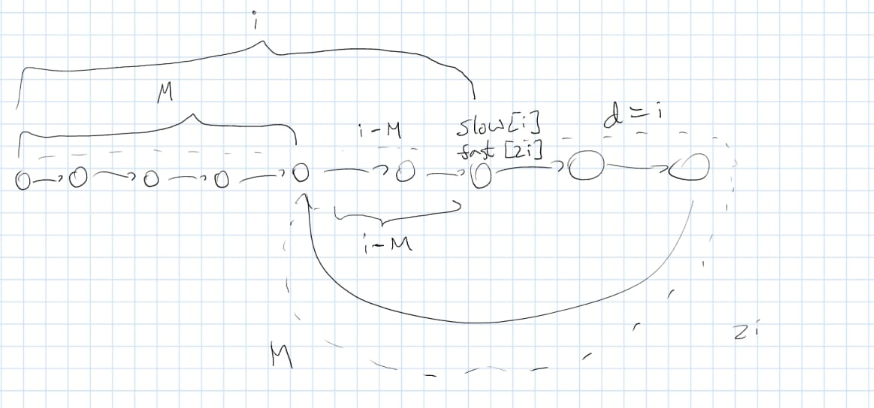 i
M
i-M
slow[i]
fast [2i]
d = i
i-M
M
2i